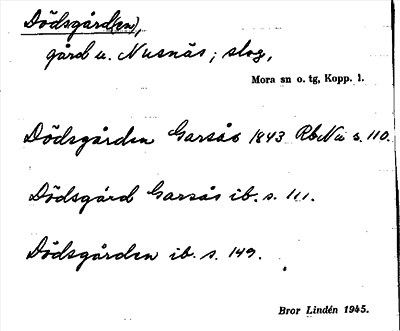 Dödsgård(en),
gård u. Nusnäs; skog,
Mora sn o. tg, Kopp. l.
Dödsgården Garsås 1843 RbNu s. 110.
Dödsgård Garsås ib. s. 111.
Dödsgården ib. s. 149.
Bror Lindén 1945.